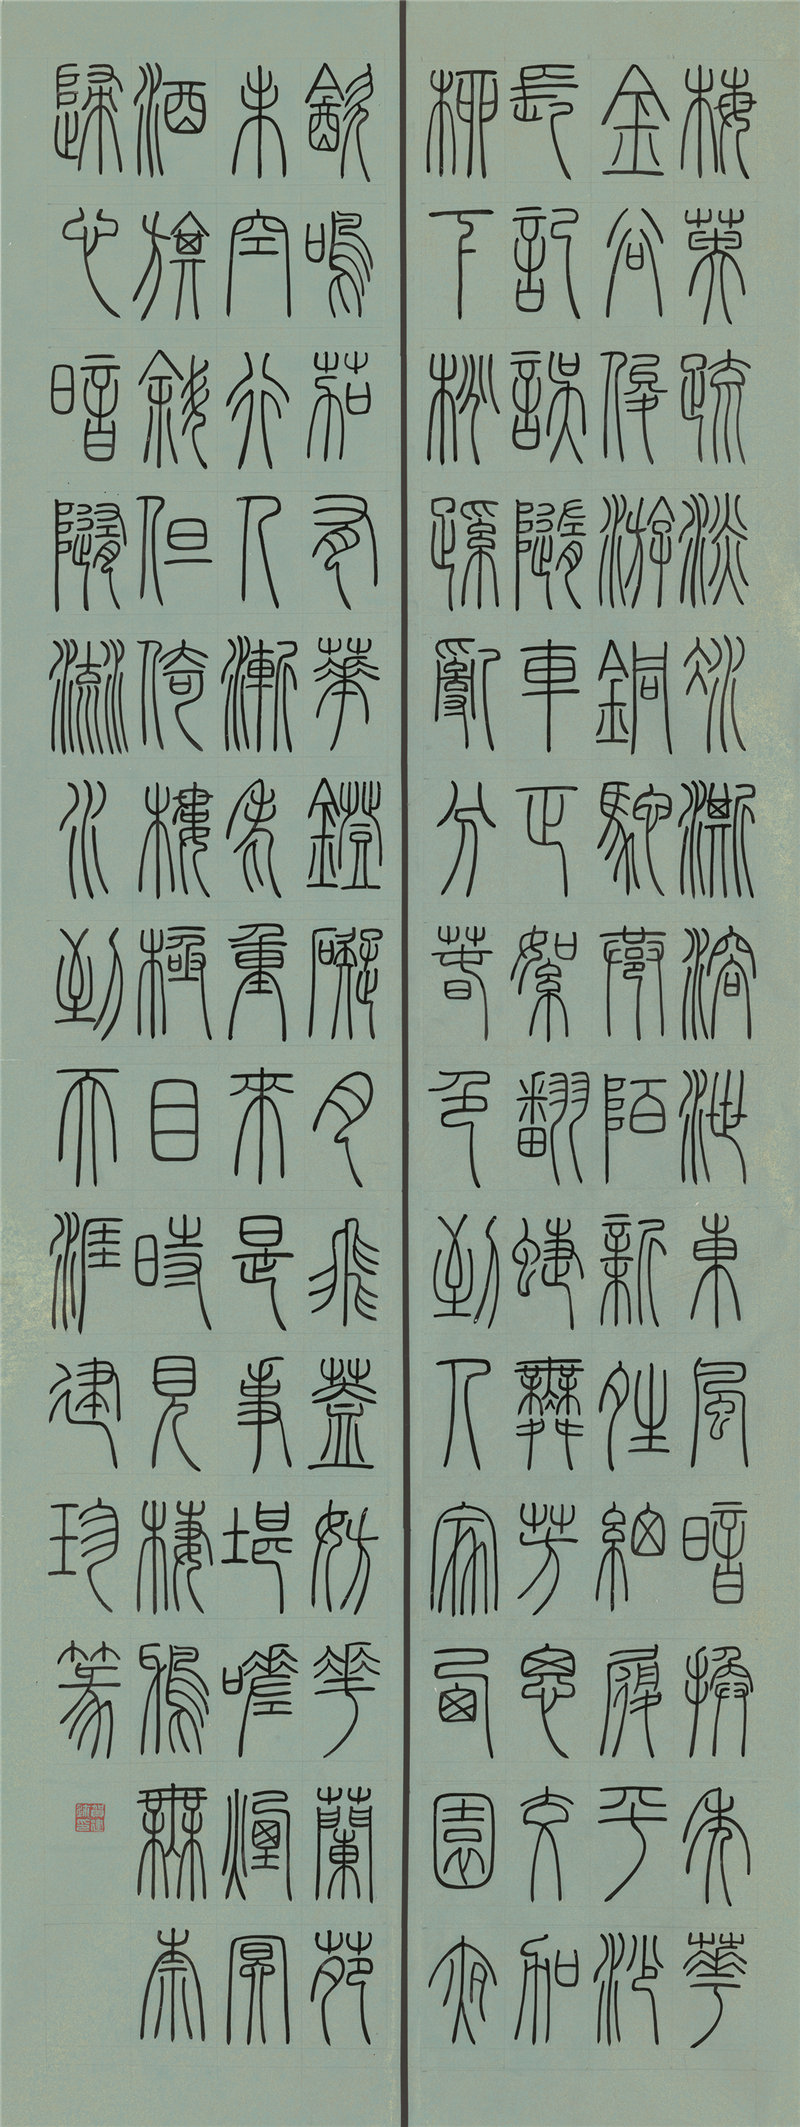 梅英疏淡冰澌溶泄東風暗換年華
金谷俊游銅駝巷陌新夝細履平沙
長記誤隨車正絮翻蜨舞芳思交加
柳下桃蹊亂分春色到人家西園夜
飲鳴笳有華鐙礙月飛蓋妨花蘭苑
未空行人漸老重來是事堪嗟煙冥
酒旗斜但倚樓極目時見棲鴉無奈
歸心暗隨流水到天涯建珍篆